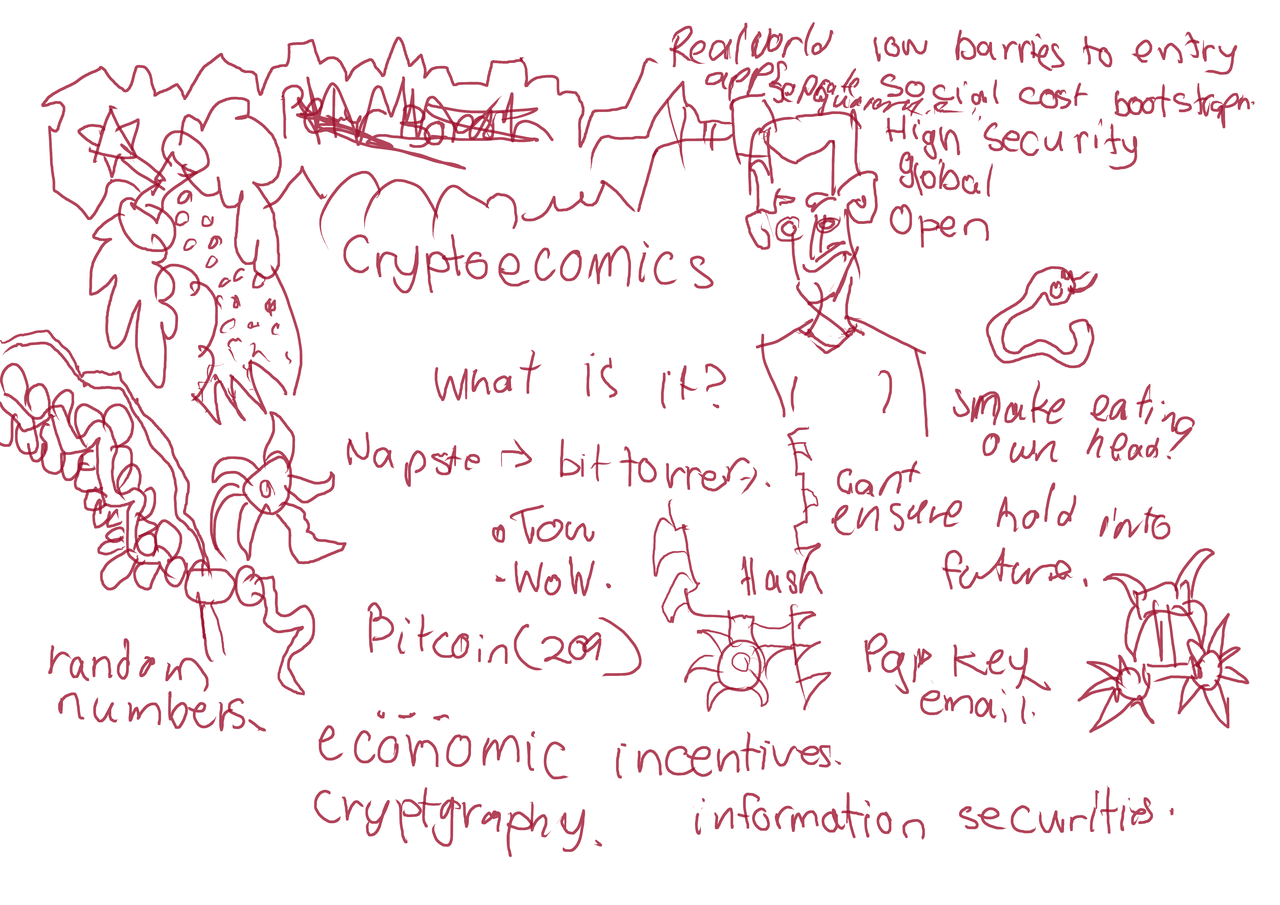 Real World low barries to entry
apps Seperate social cost bootstrapn.
High security
global
Open
Cryptoecomics
What is it?
smake eating
own head?
Napste → bittorrer→.
Cant
ensure hold into
future.
• Tou
- WoW.
Hash
Bitcoin (209)
Pgp Key
email.
random
numbers.
economic incentives.
Cryptgraphy. information securities.